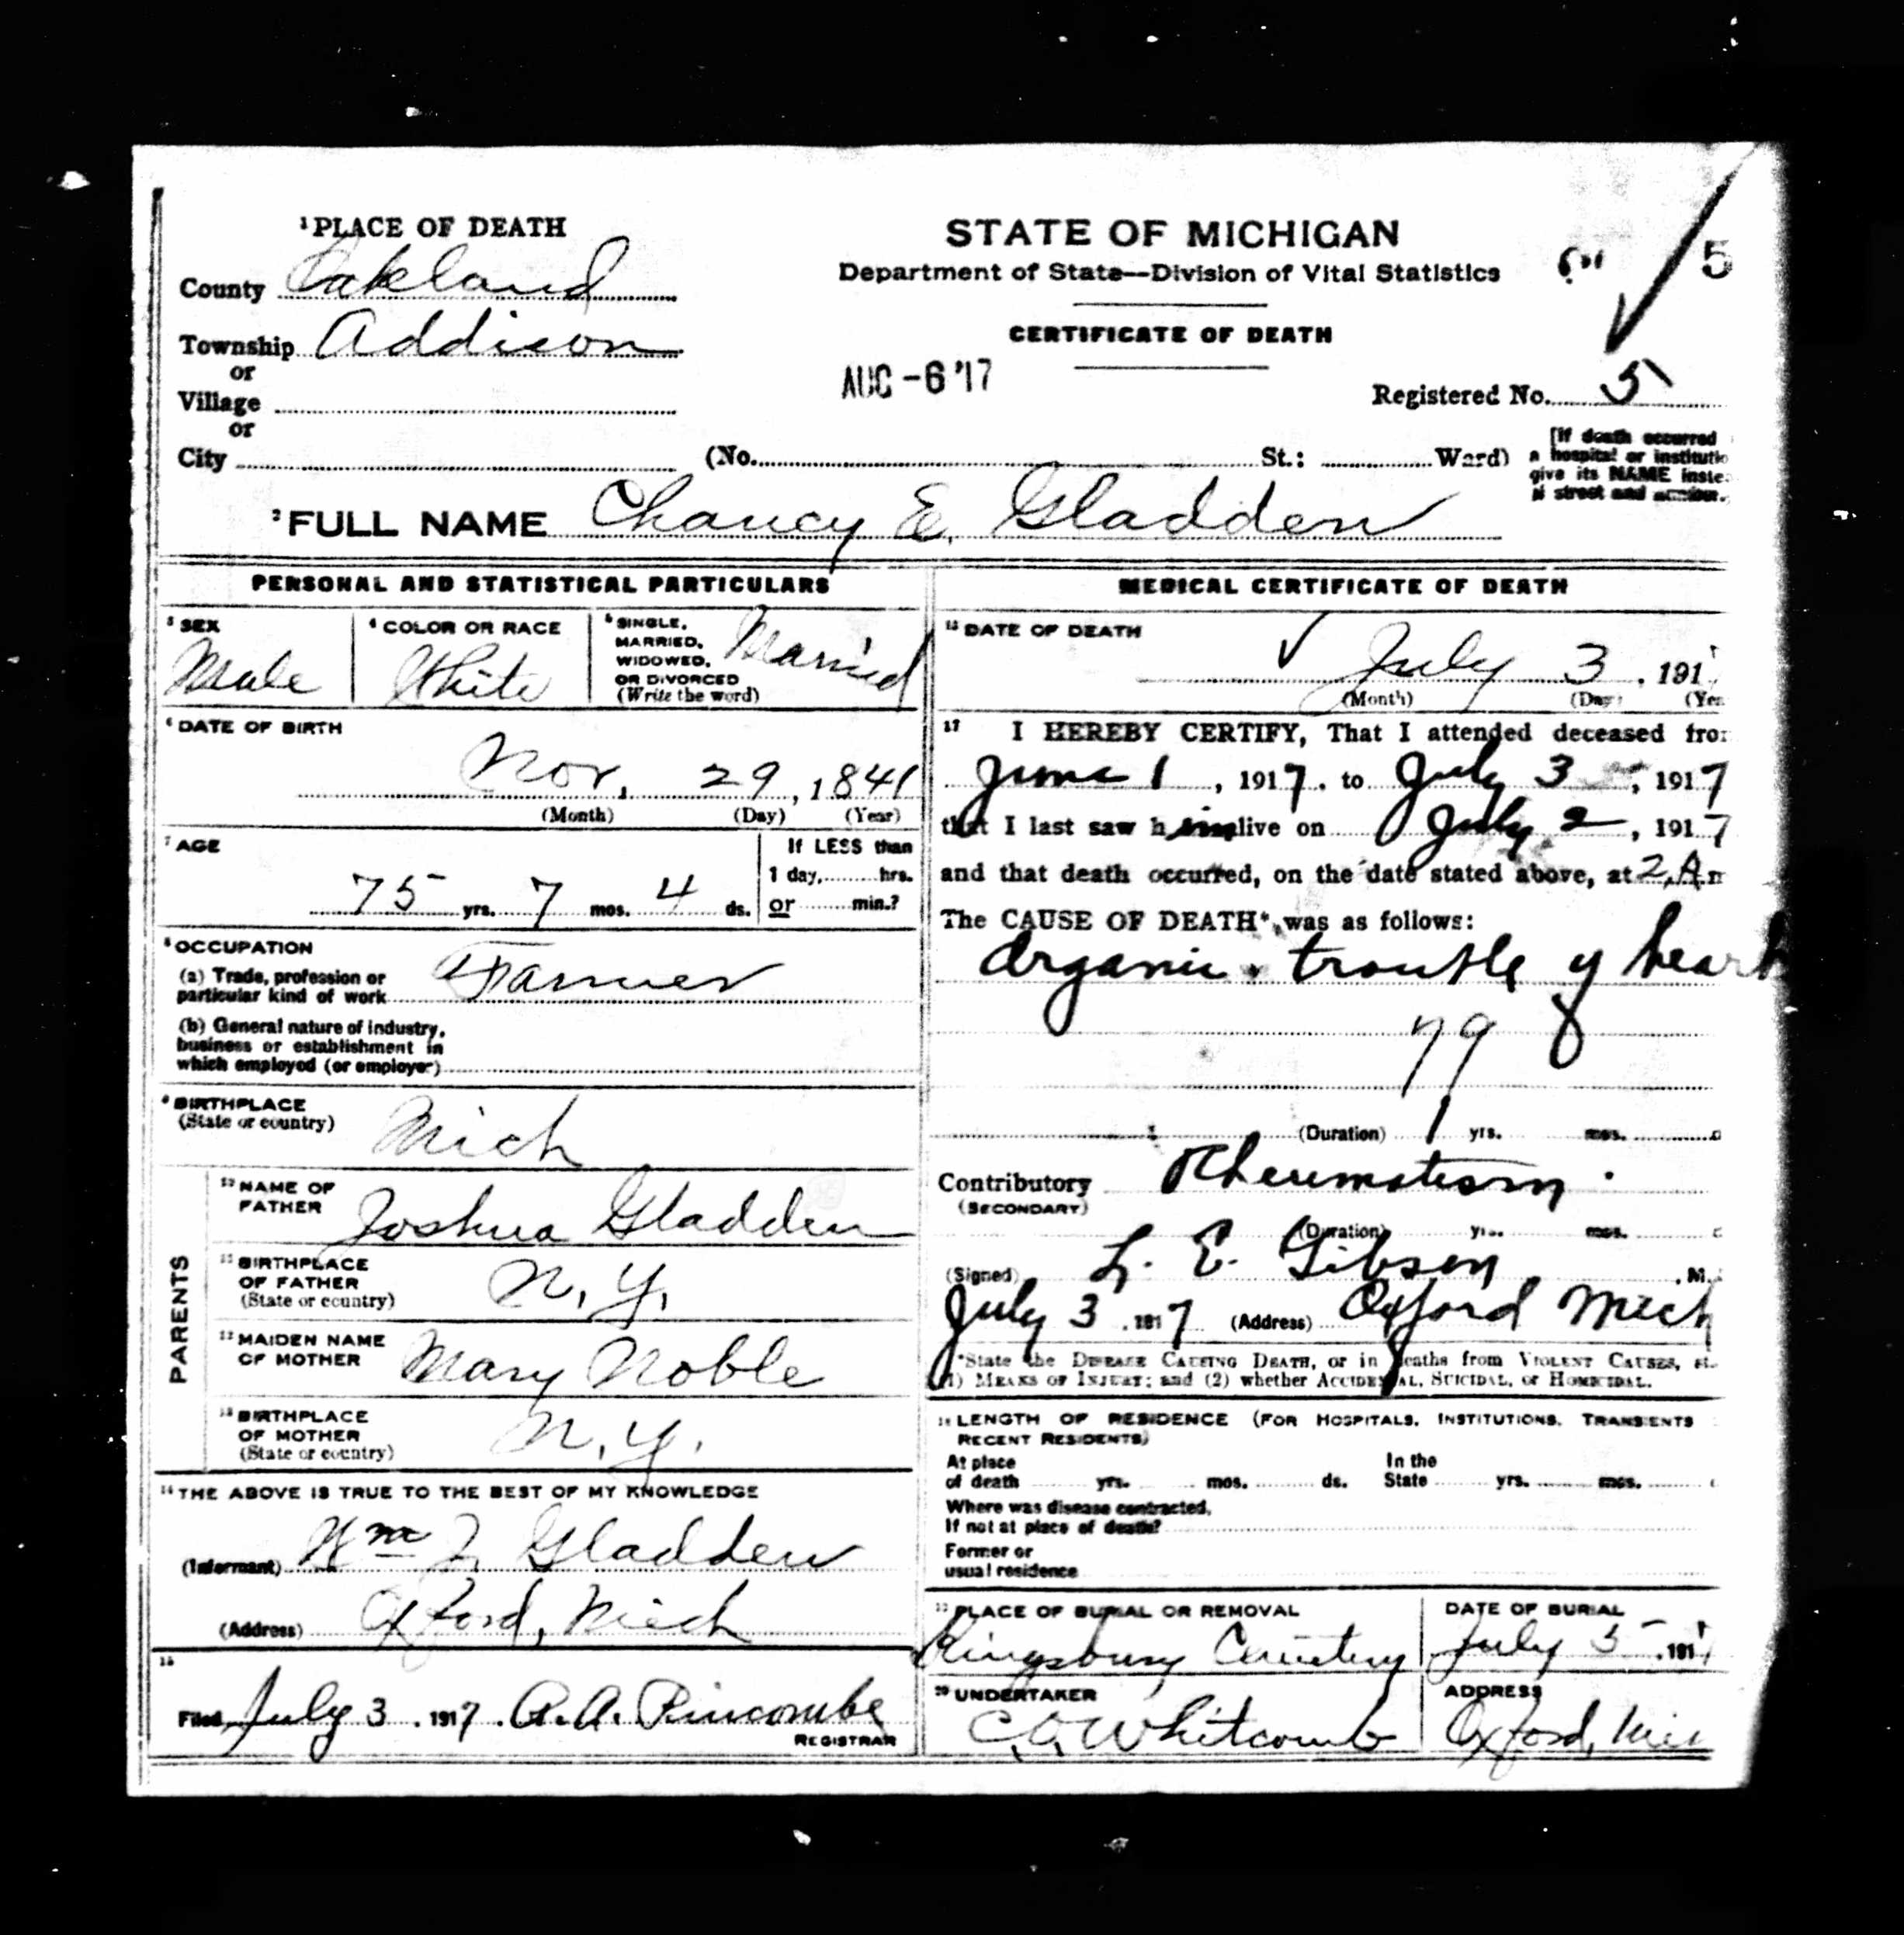 1 PLACE OF DEATH
County Oakland
Township Addison
or
Village
or
City (No. St.: Ward)
STATE OF MICHIGAN
Department of State—Division of Vital Statistics
CERTIFICATE OF DEATH
AUG -6 '17
5
Registered No. 5
[If death occurred
a hospital or institutio
give its NAME inste
of street and number.
2 FULL NAME Chancy E. Gladden
PERSONAL AND STATISTICAL PARTICULARS
3 SEX
Male
4 COLOR OR RACE
White
5 SINGLE,
MARRIED,
WIDOWED,
OR DIVORCED
(Write the word)
Married
6 DATE OF BIRTH
Nov. 29, 1841
(Month) (Day) (Year)
7 AGE
75 yrs. 7 mos. 4 ds.
If LESS than
1 day, hrs.
or min.?
8 OCCUPATION
(a) Trade, profession or
particular kind of work Farmer
(b) General nature of industry,
business or establishment in
which employed (or employer)
9 BIRTHPLACE
(State or country) Mich
PARENTS
10 NAME OF
FATHER Joshua Gladden
11 BIRTHPLACE
OF FATHER
(State or country) N. Y.
12 MAIDEN NAME
OF MOTHER Mary Noble
13 BIRTHPLACE
OF MOTHER
(State or country) N. Y.
14 THE ABOVE IS TRUE TO THE BEST OF MY KNOWLEDGE
(Informant) Wm J. Gladden
(Address) Oxford, Mich
15
Filed July 3, 1917. A. A. Pincombe
REGISTRAR
MEDICAL CERTIFICATE OF DEATH
16 DATE OF DEATH
July 3, 191
(Month) (Day) (Yea
17 I HEREBY CERTIFY, That I attended deceased fro
June 1, 1917, to July 3, 1917
that I last saw him alive on July 2, 1917
and that death occurred, on the date stated above, at 2 A m
The CAUSE OF DEATH* was as follows:
Organic trouble of heart
79
(Duration) 1 yrs. mos.
Contributory Rheumatism
(SECONDARY)
(Duration) yrs. mos.
(Signed) L. E. Gibson, M.
July 3, 1917 (Address) Oxford Mich
*State the DISEASE CAUSING DEATH, or in deaths from VIOLENT CAUSES, st
(1) MEANS OF INJURY; and (2) whether ACCIDENTAL, SUICIDAL, or HOMICIDAL.
18 LENGTH OF RESIDENCE (FOR HOSPITALS, INSTITUTIONS, TRANSIENTS
RECENT RESIDENTS)
At place In the
of death yrs. mos. ds. State yrs. mos.
Where was disease contracted,
If not at place of death?
Former or
usual residence
19 PLACE OF BURIAL OR REMOVAL
Kingsbury Cemetery
DATE OF BURIAL
July 5, 191
20 UNDERTAKER
C. O. Whitcomb
ADDRESS
Oxford, Mic